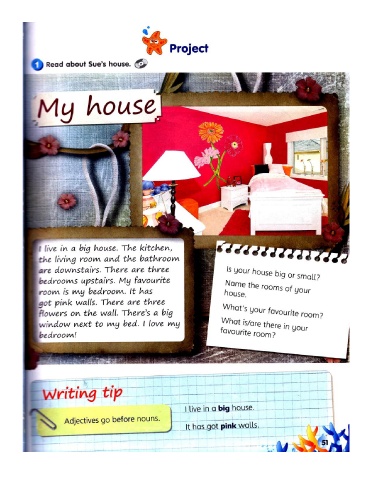 Project
1 Read about Sue's house.
My house
I live in a big house. The kitchen,
the living room and the bathroom
are downstairs. There are three
bedrooms upstairs. My favourite
room is my bedroom. It has
got pink walls. There are three
flowers on the wall. There's a big
window next to my bed. I love my
bedroom!
Is your house big or small?
Name the rooms of your
house.
What's your favourite room?
What is/are there in your
favourite room?
Writing tip
Adjectives go before nouns.
I live in a big house.
It has got pink walls.
51